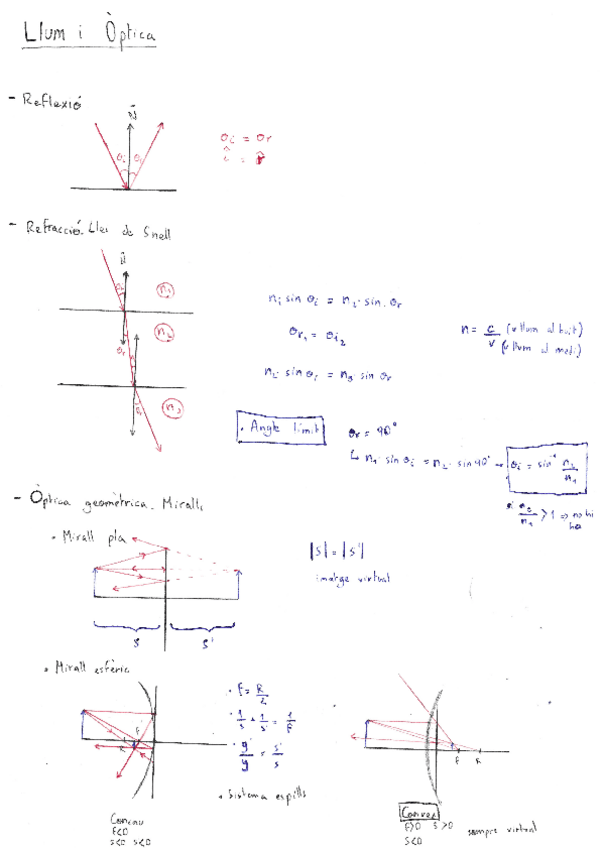 Llum i Òptica
- Reflexió
N
θi θr
θi = θr
î = r̂
- Refracció. Llei de Snell
N
θi n1
n2
θr
n3
n1 sin θi = n2 · sin · θr
θr1 = θi2
n2 · sin θi = n3 · sin θr
n = c/v (v llum al buit) (v llum al medi)
· Angle límit
θr = 90°
↳ n1 · sin θi = n2 · sin 90° → θi = sin⁻¹ n2/n1
si n2/n1 > 1 ⇒ no hi ha
- Òptica geomètrica. Miralls
· Mirall pla
|s| = |s'|
imatge virtual
s s'
· Mirall esfèric
· F = R/2
· 1/s + 1/s' = 1/F
· y'/y = s'/s
· Sistema espills
F
R
F R
Concau
F<0
s<0 s<0
Convex
F>0 s>0
s<0
sempre virtual